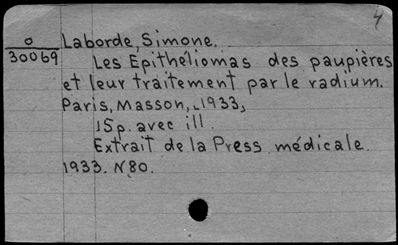 4
O Laborde, Simone.
30069 Les Épithéliomas des paupières
et leur traitement par le radium.
Paris, Masson, 1933,
15p. avec ill.
Extrait de la Press médicale
1933. N80.